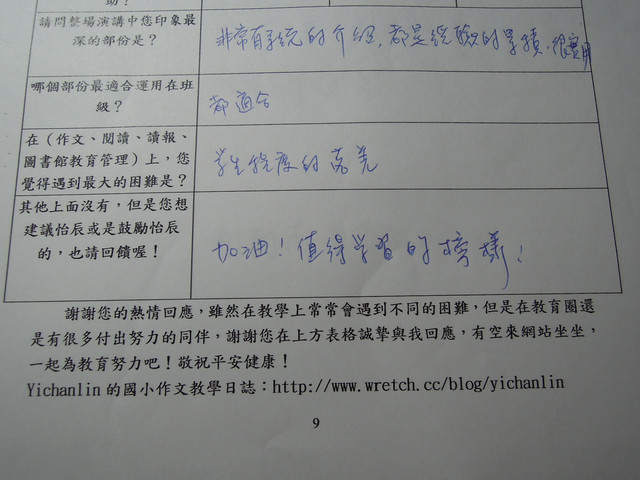 助？
請問整場演講中您印象最
深的部份是？
非常有系統的介紹，都是經驗的累積，很實用
哪個部份最適合運用在班
級？
都適合
在（作文、閱讀、讀報、
圖書館教育管理）上，您
覺得遇到最大的困難是？
學生程度的落差
其他上面沒有，但是您想
建議怡辰或是鼓勵怡辰
的，也請回饋喔！
加油！值得學習的榜樣！
謝謝您的熱情回應，雖然在教學上常常會遇到不同的困難，但是在教育圈還
是有很多付出努力的同伴，謝謝您在上方表格誠摯與我回應，有空來網站坐坐，
一起為教育努力吧！敬祝平安健康！
Yichanlin 的國小作文教學日誌：http://www.wretch.cc/blog/yichanlin
9